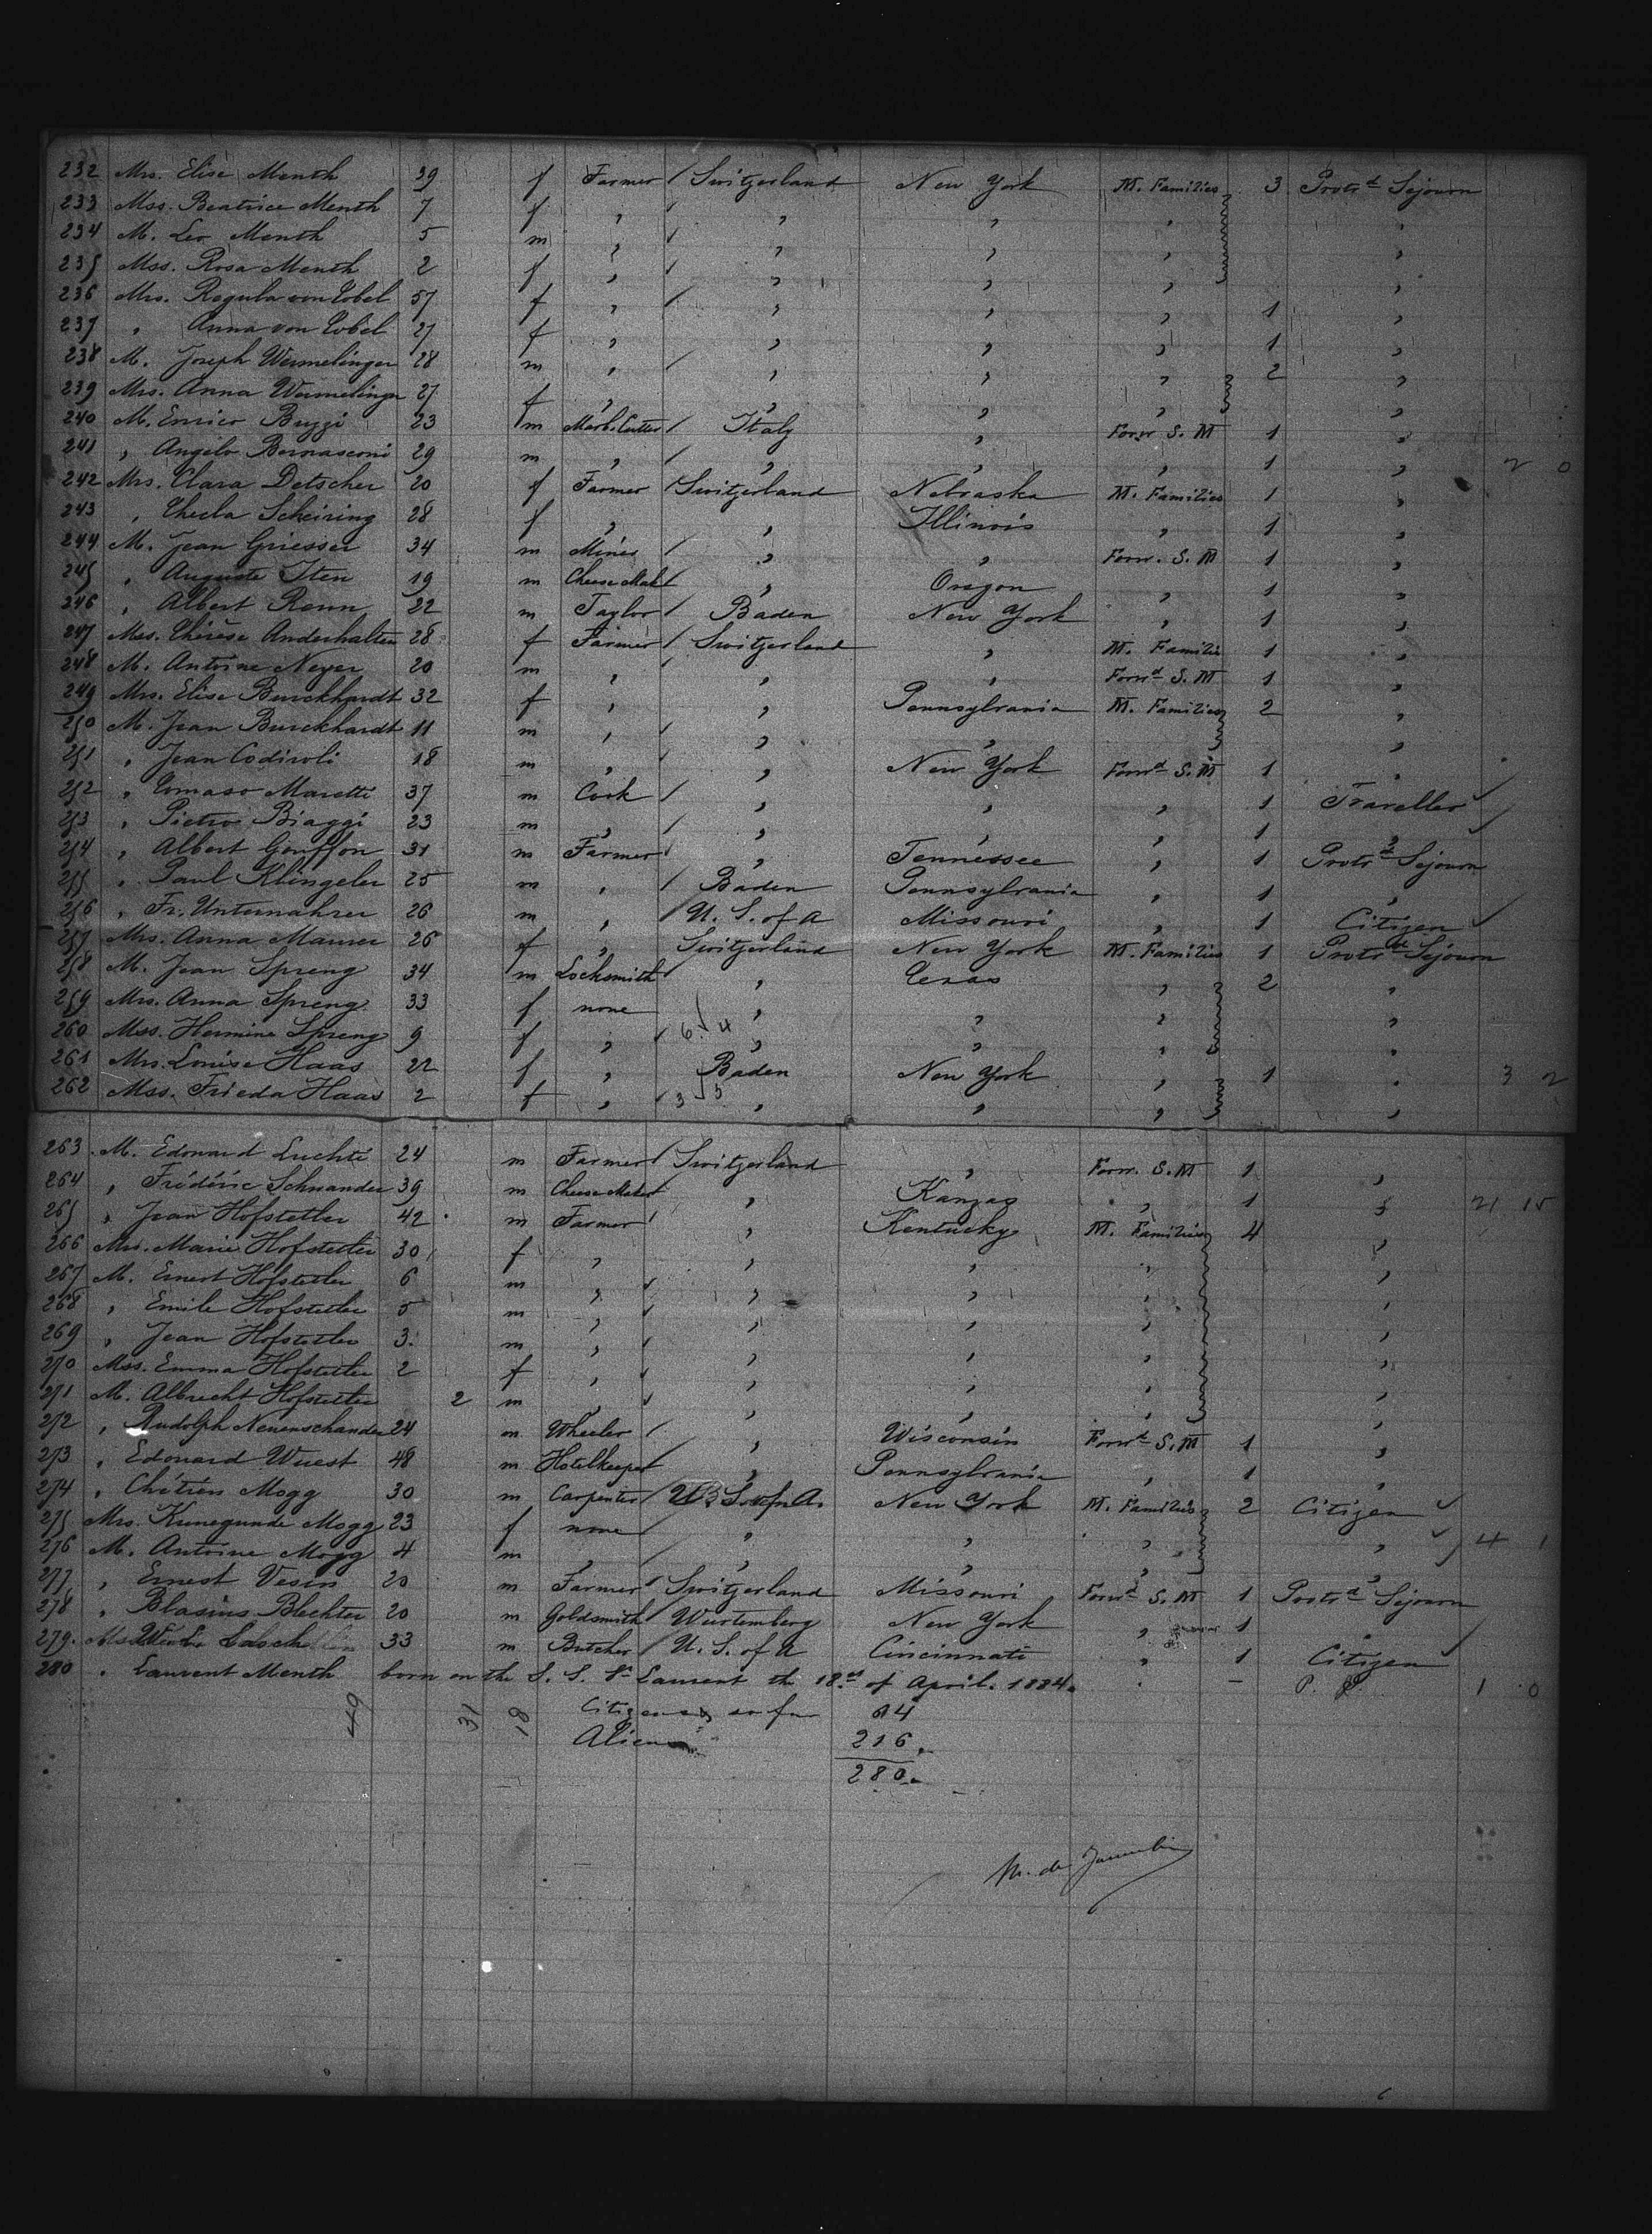 232 Mrs. Elise Menth 39 f Farmer / Switzerland New York M. Families 3 Protrd Sejourn
233 Mss. Beatrice Menth 7 f " / " " " "
234 M. Leo Menth 5 m " / " " " "
235 Mss. Rosa Menth 2 f " / " " " "
236 Mrs. Regula von Tobel 57 f " / " " " 1 "
237 " Anna von Tobel 27 f " " " " 1 "
238 M. Joseph Wermelinger 28 m " / " " " 2 "
239 Mrs. Anna Wermelinger 27 f " " " " "
240 M. Enrico Buzzi 23 m Marb. Cutter / Italy " Forw S. M 1 "
241 " Angelo Bernasconi 29 m " / " " " 1 " 2 0
242 Mrs. Clara Detscher 20 f Farmer / Switzerland Nebraska M. Families 1 "
243 " Thecla Scheiring 28 f " " Illinois " 1 "
244 M. Jean Griesser 34 m Miner / " " Forw. S. M 1 "
245 " Auguste Iten 19 m Cheese Mak / " Oregon " 1 "
246 " Albert Renn 22 m Taylor / Baden New York " 1 "
247 Mrs. Thérèse Anderhalten 28 f Farmer / Switzerland " M. Familie 1 "
248 M. Antoine Neyer 20 m " / " " Forwd S. M 1 "
249 Mrs. Elise Burckhardt 32 f " " Pennsylvania M. Families 2 "
250 M. Jean Burckhardt 11 m " / " " "
251 " Jean Codiroli 18 m " / " New York Forwd S. M 1 "
252 " Tomaso Maretti 37 m Cook / " " " 1 Traveller ✓
253 " Pietro Biaggi 23 m " / " " " 1 "
254 " Albert Gouffon 31 m Farmer / " Tennessee " 1 Protrd Sejourn
255 " Paul Klingeler 25 m " / Baden Pennsylvania " 1 "
256 " Fr. Unternahrer 26 m " / U. S. of A Missouri " 1 Citizen ✓
257 Mrs. Anna Maurer 26 f " Switzerland New York M. Families 1 Protrd Sejourn
258 M. Jean Spreng 34 m Locksmith / " Texas " 2 "
259 Mrs. Anna Spreng 33 f none " " " "
260 Mss. Hermine Spreng 9 f " / 6 4 " " " "
261 Mrs. Louise Haas 22 f " Baden New York " 1 " 3 2
262 Mss. Frieda Haas 2 f " / 3 5 " " " "
263 M. Edouard Luchti 24 m Farmer / Switzerland " Forw. S. M 1 "
264 " Frédéric Schwander 39 m Cheese Maker / " Kanzas " 1 " 21 15
265 " Jean Hofstetler 42 m Farmer / " Kentucky M. Families 4 "
266 Mrs. Marie Hofstetler 30 f " " " " "
267 M. Ernest Hofstetler 6 m " / " " "
268 " Emile Hofstetler 5 m " / " " " "
269 " Jean Hofstetler 3 m " / " " " "
270 Mss. Emma Hofstetler 2 f " / " " " "
271 M. Albrecht Hofstetler 2 m " / " " " "
272 " Rudolph Neuenschander 24 m Wheeler / " Wisconsin Forwd S. M 1 "
273 " Edouard Wuest 48 m Hotelkeeper / " Pennsylvania " 1 "
274 " Chrétien Mogg 30 m Carpenter / U. S. of A. New York M. Families 2 Citizen ✓
275 Mrs. Kunegunde Mogg 23 f none / " " " " ✓
276 M. Antoine Mogg 4 m " / " " " " 4 1
277 " Ernest Vesin 20 m Farmer / Switzerland Missouri Forwd S. M 1 Protrd Sejourn
278 " Blasius Blechter 20 m Goldsmith Wurtemberg New York " 1 "
279. 33 m Butcher / U. S. of A Cincinnati " 1 Citizen ✓
280 " Laurent Menth born on the S. S. St Laurent the 18th of April. 1884. - P. S. 1 0
31 18 Citizens so far 64
Aliens 216
280